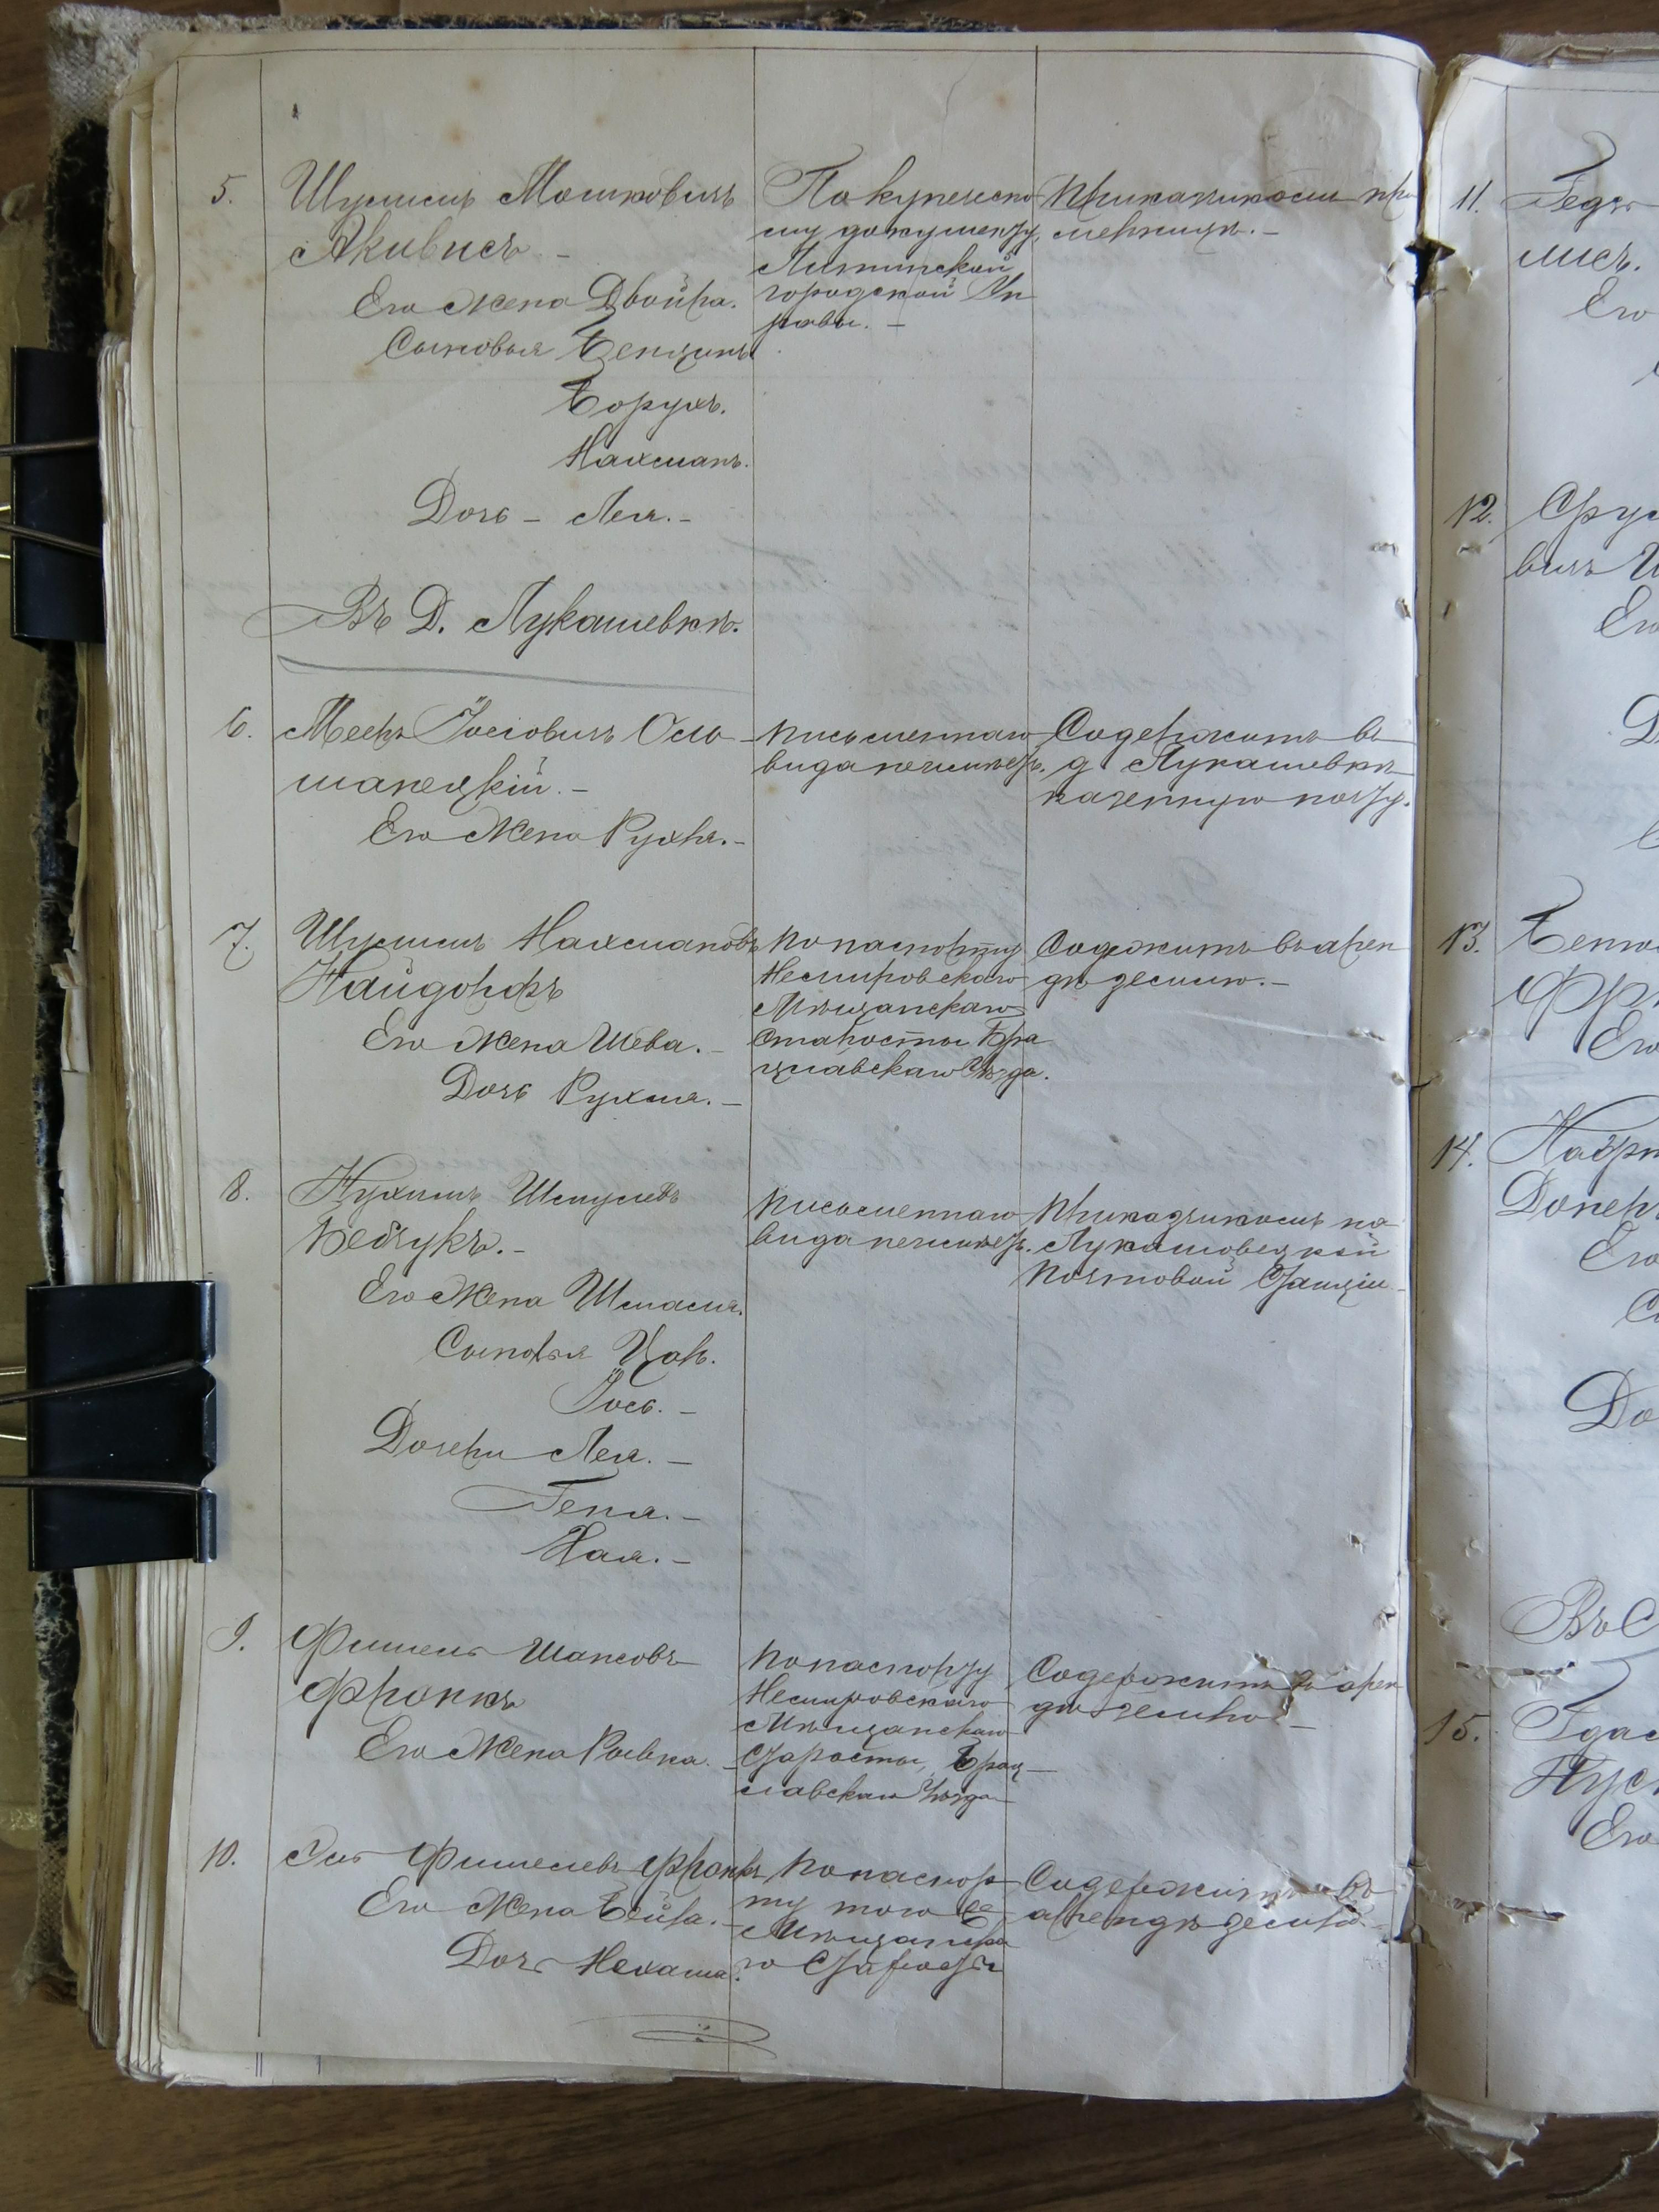 5. Шулимъ Мошковичъ
Акивисъ –
Его жена Двойра.
Сыновья Бенционъ
Борухъ.
Нахманъ.
Дочь – Лея. –
По купеческо
му документу,
Литинской
городской Уп
равы. –
Прикащикомъ при
мельницѣ. –
Въ Д. Лукашевкѣ.
6. Мееръ Іосіовичъ
шанецкій. –
Его жена Рухля. –
письменнаго
вида неимѣетъ.
Содержитъ въ
д. Лукашевкѣ
казенную почту.
7. Шулимъ Нахмановъ
Найдорфъ
Его жена Шева. –
Дочь Рухля. –
по паспорту
Немировскаго
Мѣщанскаго
Старосты Бра
цлавскаго Уѣзда.
Содежитъ въ арен
дѣ землю. –
8. Нухимъ Шмулевъ
Его жена
Сыновья
Іось. –
Дочери Лея. –
Геня. –
Хая. –
письменнаго
вида неимѣетъ.
Прикадчикомъ на
Лукашовецкой
почтовой Станціи –
9. Фишель Шапсовъ
Фронкъ
Его жена Ривка. –
по паспорту
Немировскаго
Мѣщанскаго
Старосты, Брац
лавскаго Уѣзда
Содержитъ въ арен
дѣ землю –
10. Фишелевъ Фронкъ
Его жена Бейла. –
Дочь Нехама.
по паспор
ту того же
Мѣщанска
го Старосты
Содержитъ въ
арендѣ землю. –
11.
лисъ.
Его
12. Сру
вичъ
Его
13.
Его
14.
Его
Въ С
15.
Его